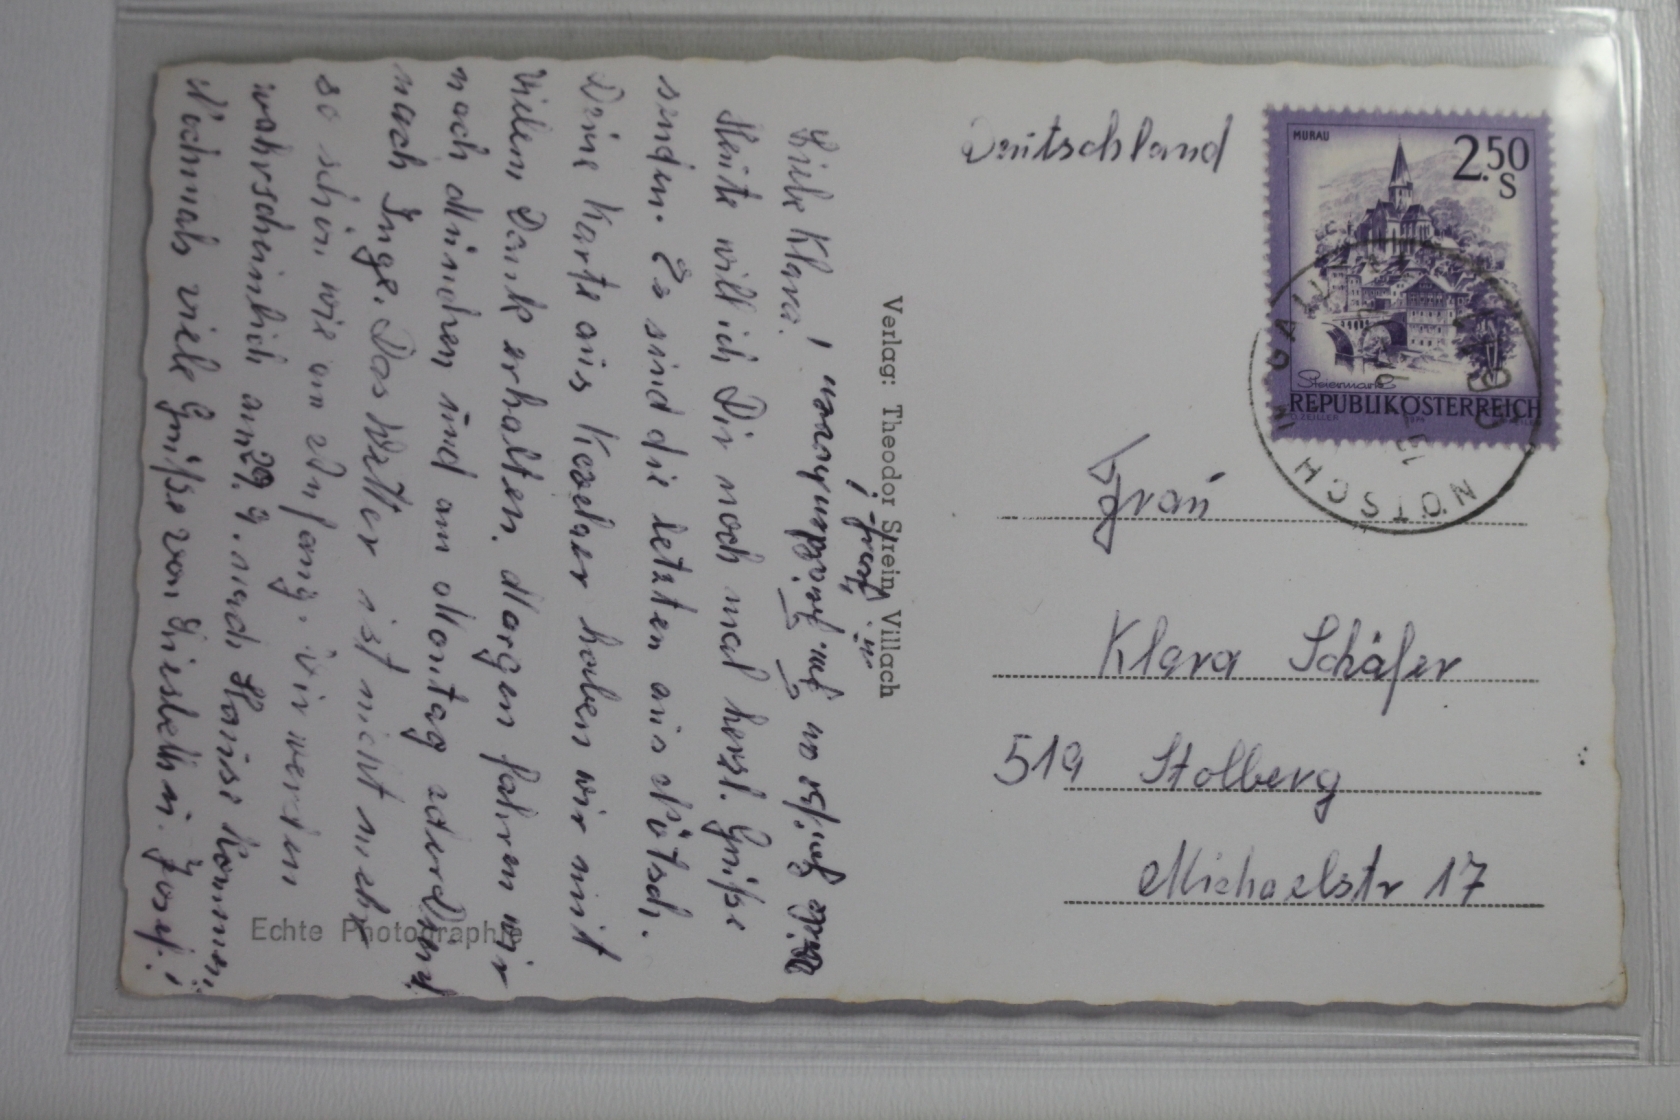 Liebe Klara!
Heute will ich Dir noch mal herzl. Grüße
senden. Es sind die letzten aus Nötsch.
Deine Karte aus Koslar haben wir mit
vielem Dank erhalten. Morgen fahren wir
nach München und am Montag
nach Inge. Das Wetter ist nicht mehr
so schön wie am Anfang. Wir werden
wahrscheinlich am 29. 9. nach Hause kommen.
Nochmals viele Grüße von Josef!
Verlag: Theodor Strein, Villach
Echte Photographie
Deutschland
MURAU
2.50
S
Steiermark
REPUBLIK ÖSTERREICH
NÖTSCH
Frau
Klara Schäfer
519 Stolberg
Michaelstr 17